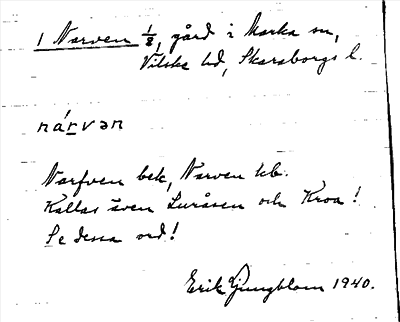 1 Narven 1/8, gård i Marka sn,
Vilske hd, Skaraborgs l.
nárvən
Narfven bek, Narven kb.
Kallas även Luråsen och Kroa!
Se dessa ord!
Erik Ljungblom 1940.